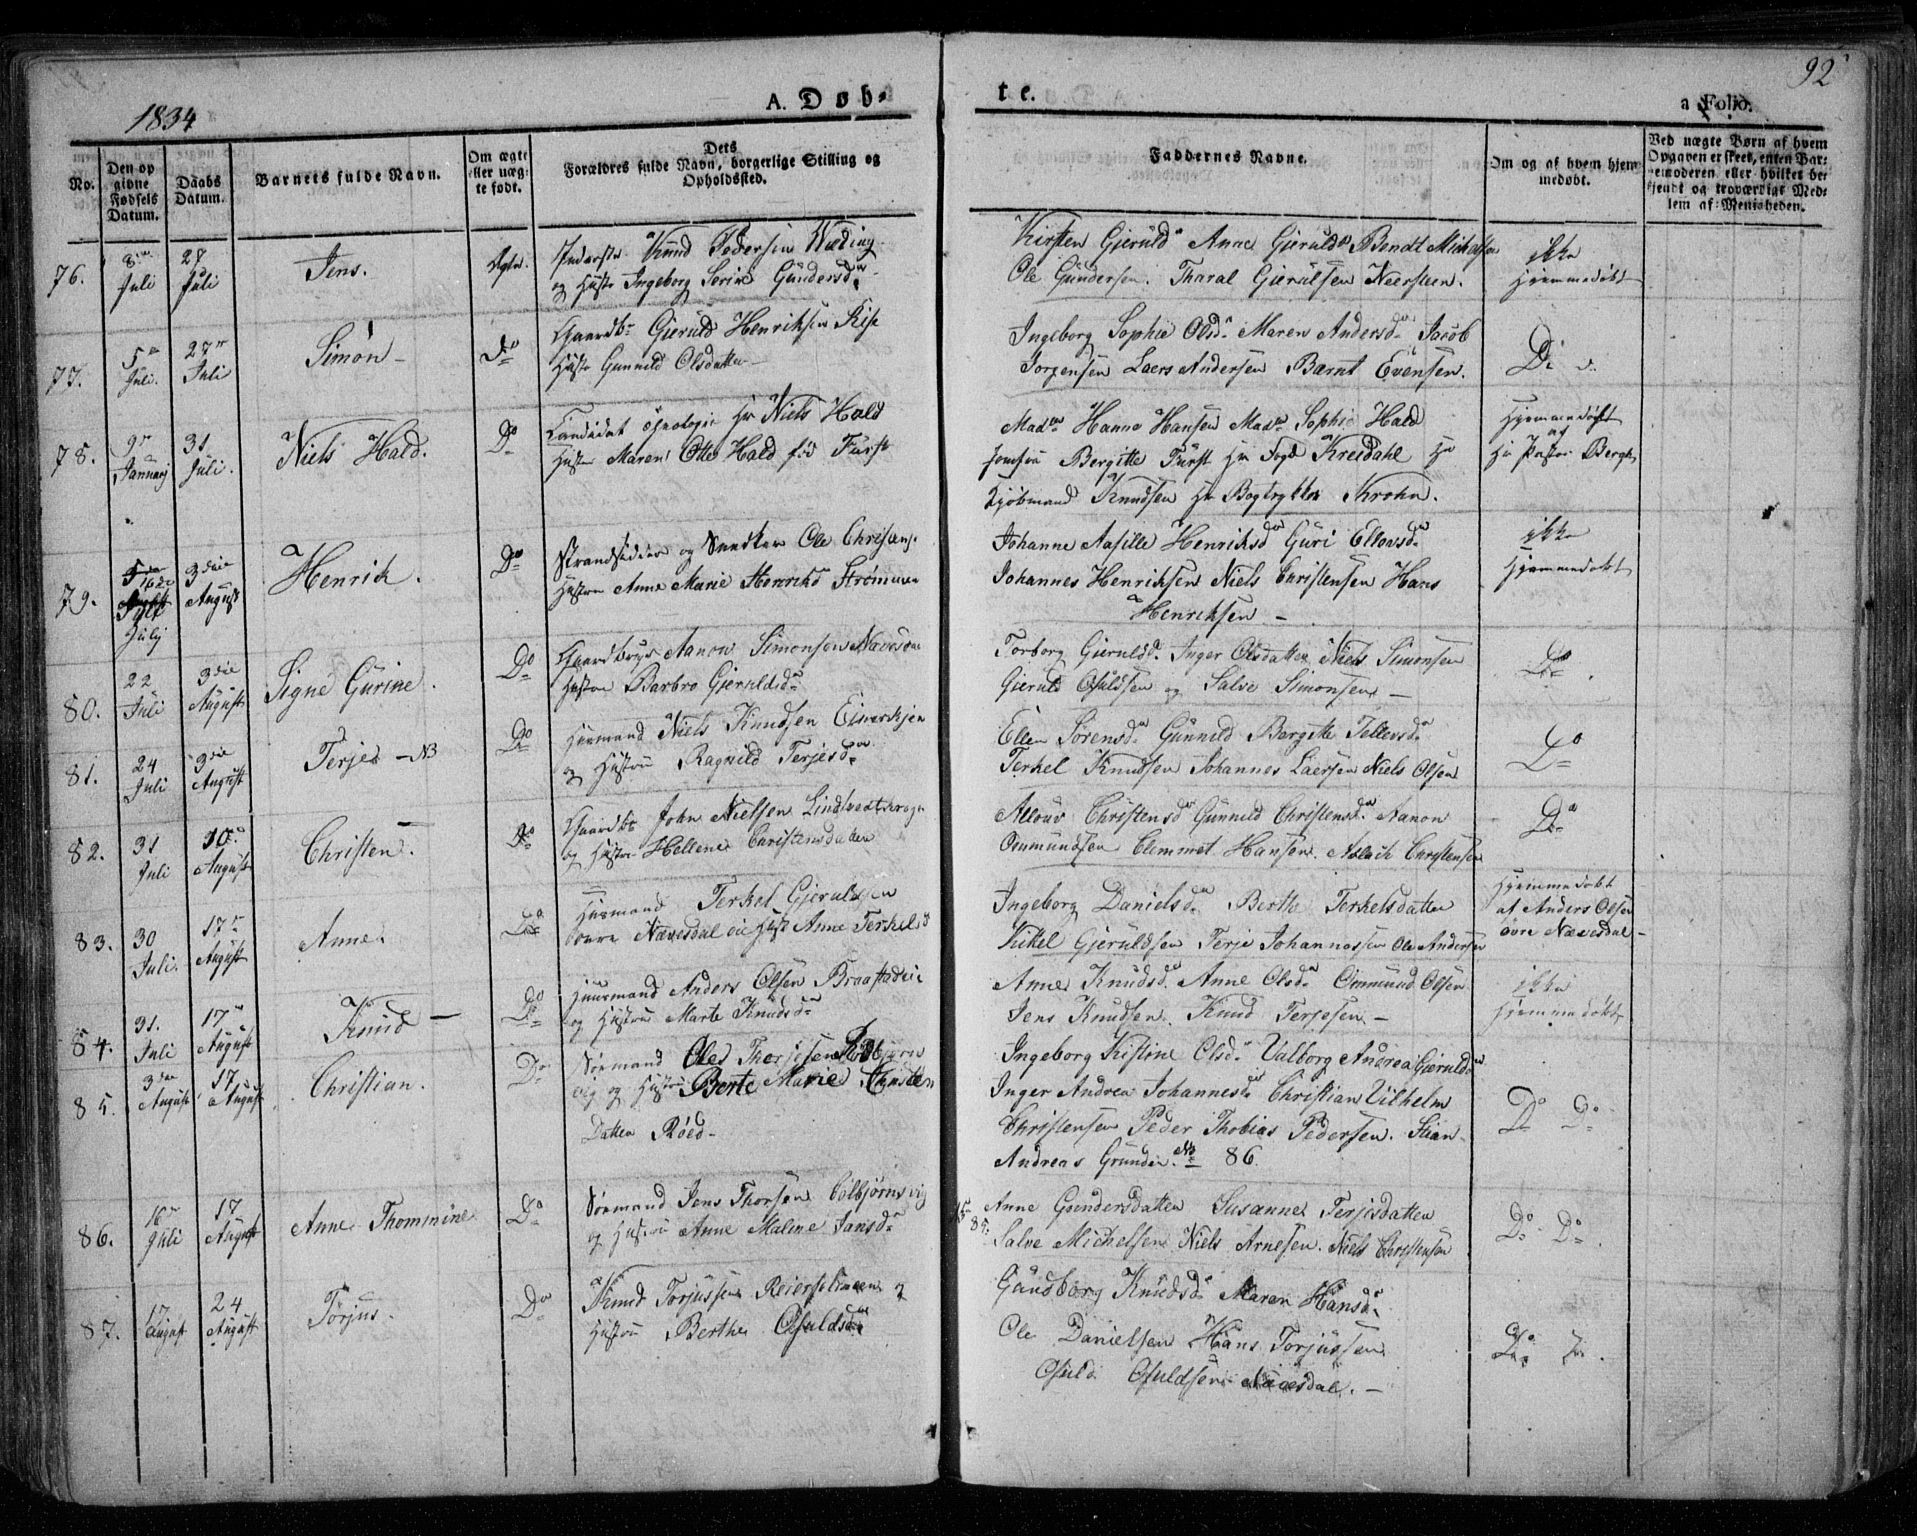 1834
A. Døb-
te.
92
a Folio.
No.
Den op
givne
Fødsels
Datum.
Daabs
Datum.
Barnets fulde Navn.
Om ægte
eller uæg-
te født.
Dets
Forældres fulde Navn, borgerlige Stilling og
Opholdssted.
Faddernes Navne.
Om og af hvem hjem
medøbt.
Ved uægte Børn af hvem
Opgaven er skeet, enten Bar-
nemoderen eller hvilket be-
kjendt og troværdigt Med-
lem af Menigheden.
76.
Juli
27
Juli
Jens.
Knud Pedersen
og Hustr Ingeborg Serine Gundersd
Kirsten Gjeruldsd Anne Gjerulds Bendt Michelsen
Ole Gundersen. Tharal Gjerulsen Neersteen.
ikke
Hjemmedøbt
77.
5
Juli.
27
Juli
Simon -
Do
Gaardbr Gjeruld Henriksen Kise
Hustr Gunnild Olsdatter
Ingeborg Sophie Olsd Maren Andersd Jacob
Jorgensen Laers Andersen Barnt Evensen.
Do
78.
9
Januarj
31
Juli.
Niels Hald.
Do
Candidat theologie Hr Niels Hald
Hustru Maren Otte Hald fød Fürst
Mad Hanne Hansen Mad Sophie Hald
Jomfru Bergitte Fürst Hr Fogd Kreidahl Hr
Kjøbmand Knudsen Hr Bogtrykker Krohn.
Hjemmedøbt
af
Hr Pastor Bergh
79.
16
Julj
3die
August
Henrik.
Do
Strandsidder og Snedker Ole Christens.
Hustru Anne Marie Henriksd Strømmen
Johanne Aasille Henriksd Guri Ellovsd
Johannes Henriksen Niels Christensen Hans
Henriksen -
ikke
Hjemmedøbt
80.
22
Juli
3die
August
Signe Gurine.
Do
Gaardbruger Aanon Simonsen Næv
Hustru Barbro Gjeruldsd
Torborg Gjeruldsd. Inger Olsdatter Niels Simonsen
Gjeruld Osuldsen og Salve Simonsen -
Do
81.
24
Juli
3die
August
Terje - NB
Do
Huusmand Niels Knudsen
og Hustru Ragnild Terjesd
Ellen Sørensd Gunnild Bergitte Tellevsd
Terkel Knudsen Johannes Laersen Niels Olsen
Do
82.
31
Juli
10
August
Christen.
Do
Gaardbr John Nielsen Lindtvedt
og Hustru Hellene Christensdatter
Christensd Gunnild Christensd Aanon
Ommundsen Clemmet Hansen. Aslach Christensen
Do
83.
30
Juli.
17
August
Anne.
Do
Huusmand Terkel Gjeruldsen
Nævesdal Anne Terkelsd
Ingeborg Danielsd Berthe Terkelsdatter
Kitel Gjeruldsen Terje Johannessen Ole Andersen
Hjemmedøbt
af Anders Olsen
øvre Nævesdal -
84.
31.
Juli
17
August
Knud -
Do
Huusmand Anders Olsen
og Hustru Marte Knudsd
Anne Knudsd. Anne Olsd Ommund Olsen
Jens Knudsen. Knud Terjesen -
ikke
Hjemmedøbt
85.
3die
August
17
August
Christian.
Do
Sømand Ole Thorjesen Kolbjørns
vig og Hustru Berte Marie
Datter Røed -
Ingeborg Kistine Olsd Valborg Andrea Gjerulds
Inger Andrea Johannesd Christian Vilhelm
Christensen Peder Thobias Pedersen. Stian
Andreas Grundes. No 86.
Do Do
86.
16
Juli
17
August
Anne Thommine
Do
Sømand Jens Thorsen Colbjørnsvig
og Hustru Anne Maline Jansd
85
Anne Gundersdatter Susanne Terjesdatter
Salve Michelsen Niels Arnesen. Niels Christensen
Do Do.
87.
17
August
24
August
Tørjus.
Do
Knud Torjussen Reiersølmoen og
Hustru Berthe Osuldsd
Gundborg Knudsd Maren Hansd.
Ole Danielsen Hans Torjussen.
Osuld Osuldsen Nævesdal. -
Do Do.